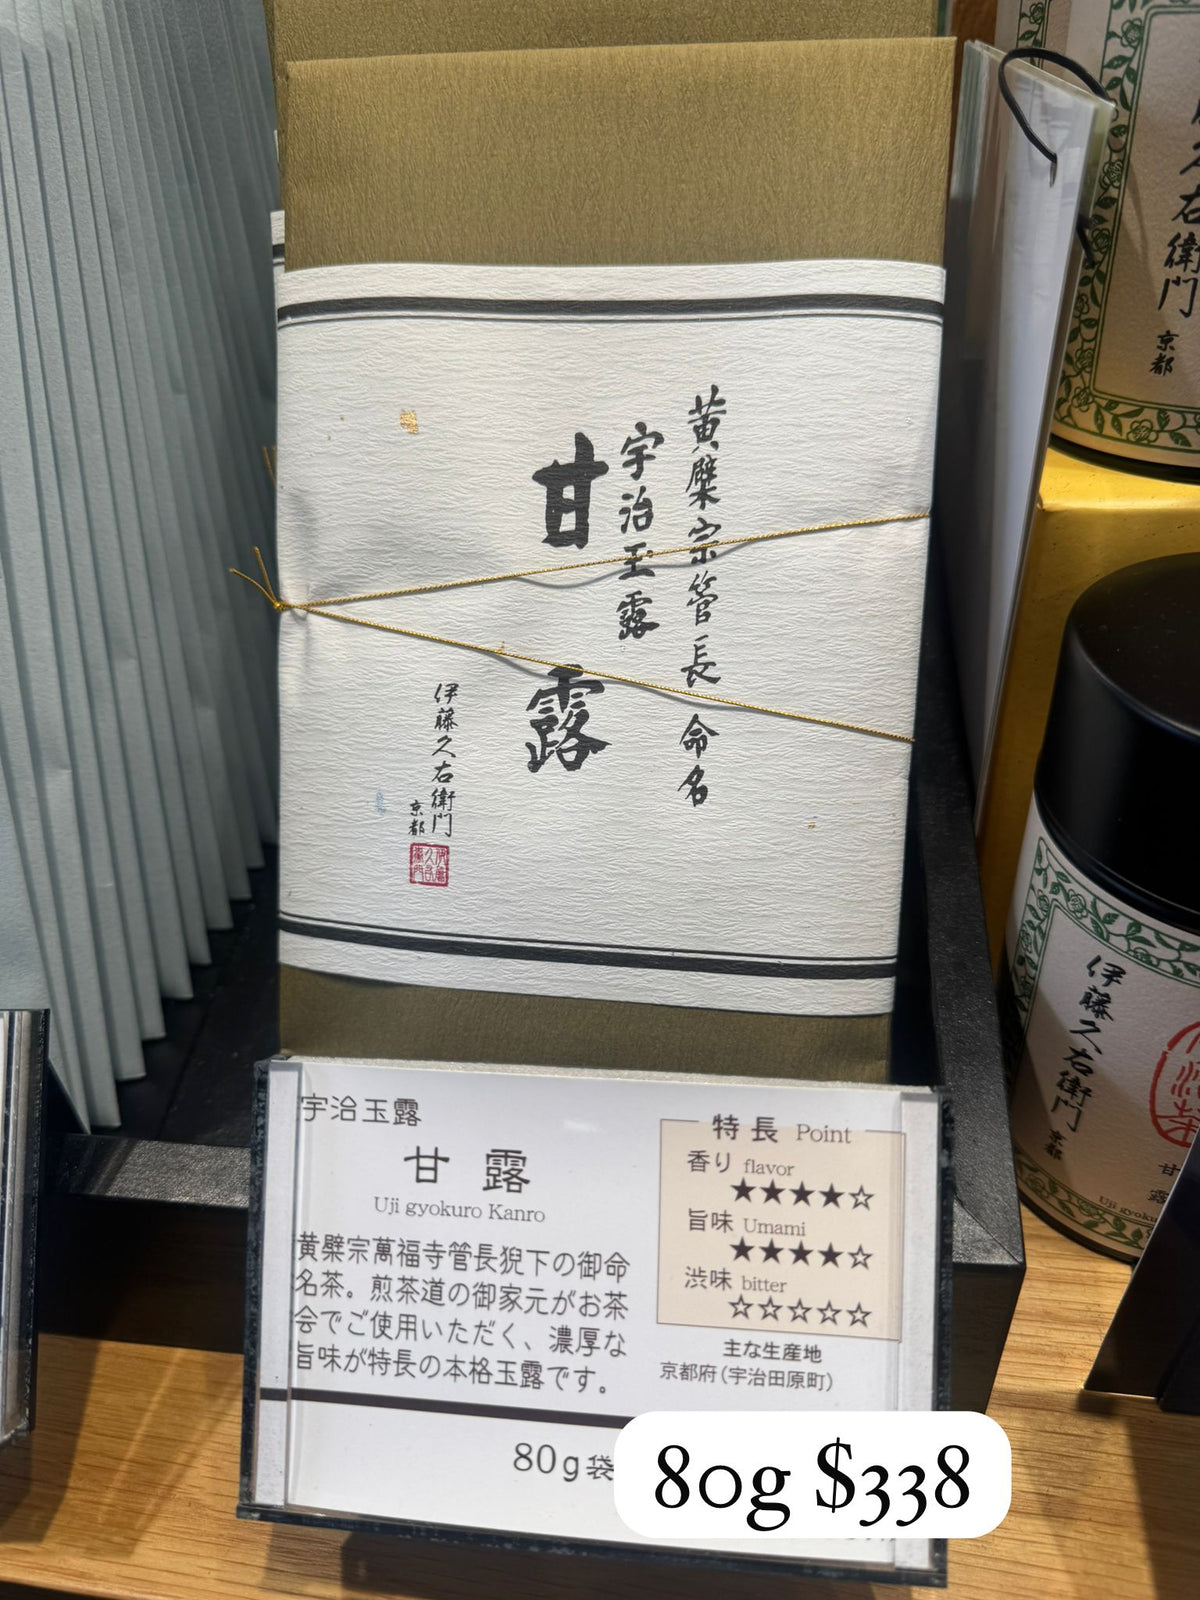 黄檗宗管長 命名
宇治玉露
甘露
伊藤久右衛門
京都
宇治玉露
甘露
Uji gyokuro Kanro
黄檗宗萬福寺管長猊下の御命
名茶。煎茶道の御家元がお茶
会でご使用いただく、濃厚な
旨味が特長の本格玉露です。
80g袋
特長 Point
香り flavor
★★★★☆
旨味 Umami
★★★★☆
渋味 bitter
☆☆☆☆☆
主な生産地
京都府(宇治田原町)
80g $338
右衛門
京都
伊藤久右衛門
京都
甘
露
Uji gyoku